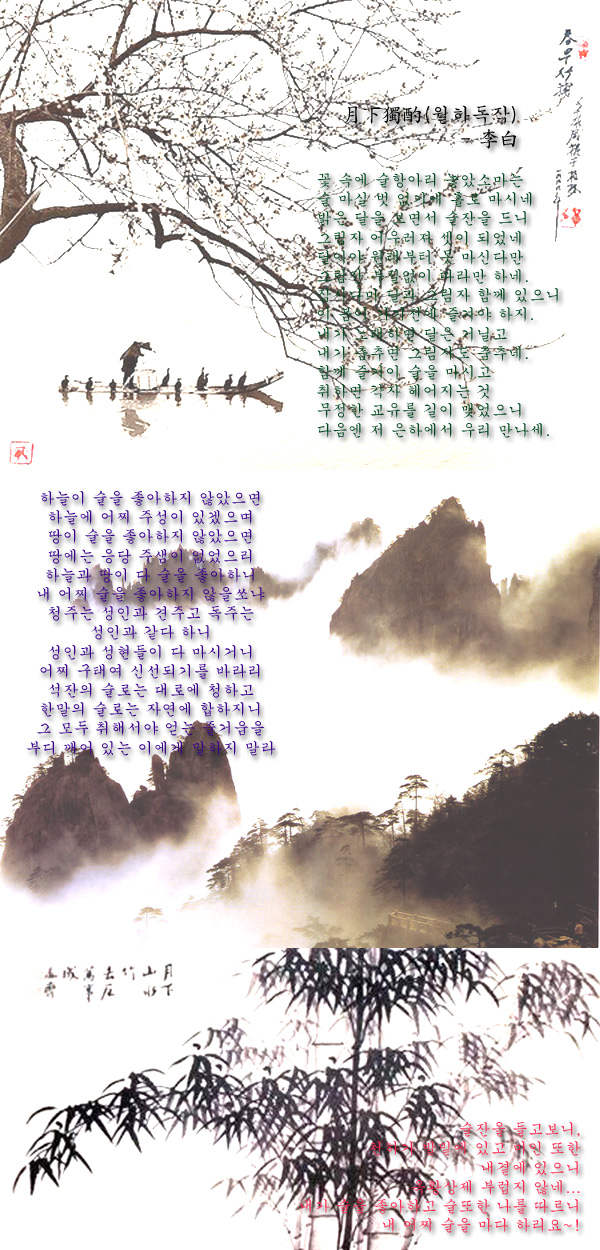 月下獨酌(월하독작)
李白
꽃 속에 술항아리 놓았소마는
술 마실 벗 없기에 홀로 마시네
밝은 달을 보면서 술잔을 드니
그림자 어우러져 셋이 되었네
달이야 원래부터 못 마신다만
그림자 부질없이 따라만 하네.
달과 그림자 함께 있으니
이 봄이 즐겨야 하지.
내가 노래하면 달은 거닐고
내가 춤추면 그림자도 춤추네.
함께 즐거이 술을 마시고
취하면 각자 헤어지는 것
무정한 교유를 길이 맺었으니
다음엔 저 은하에서 우리 만나세.
하늘이 술을 좋아하지 않았으면
하늘에 어찌 주성이 있겠으며
땅이 술을 좋아하지 않았으면
땅에는 응당 주샘이 없었으리
하늘과 땅이 다 술을 좋아하니
내 어찌 술을 좋아하지 않을쏘냐
청주는 성인과 견주고 독주는
성인과 같다 하니
성인과 성현들이 다 마시거니
어찌 구태여 신선되기를 바라리
석잔의 술로는 대로에 청하고
한말의 술로는 자연에 합하지니
그 모두 취해서야 얻는 즐거움을
부디 깨어 있는 이에게 말하지 말라
月下
山
竹
萬事
成
술잔을 들고보니,
있고 여인 또한
내곁에 있으니
부럽지 않네...
내가 술을 좋아하고 술또한 나를 따르니
내 어찌 술을 마다 하리요~!